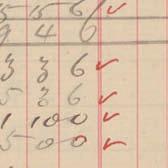 5 5 6 ✓
9 4 6
3 3 6 ✓
5 3 6 ✓
1 10 0 ✓
5 0 0 ✓